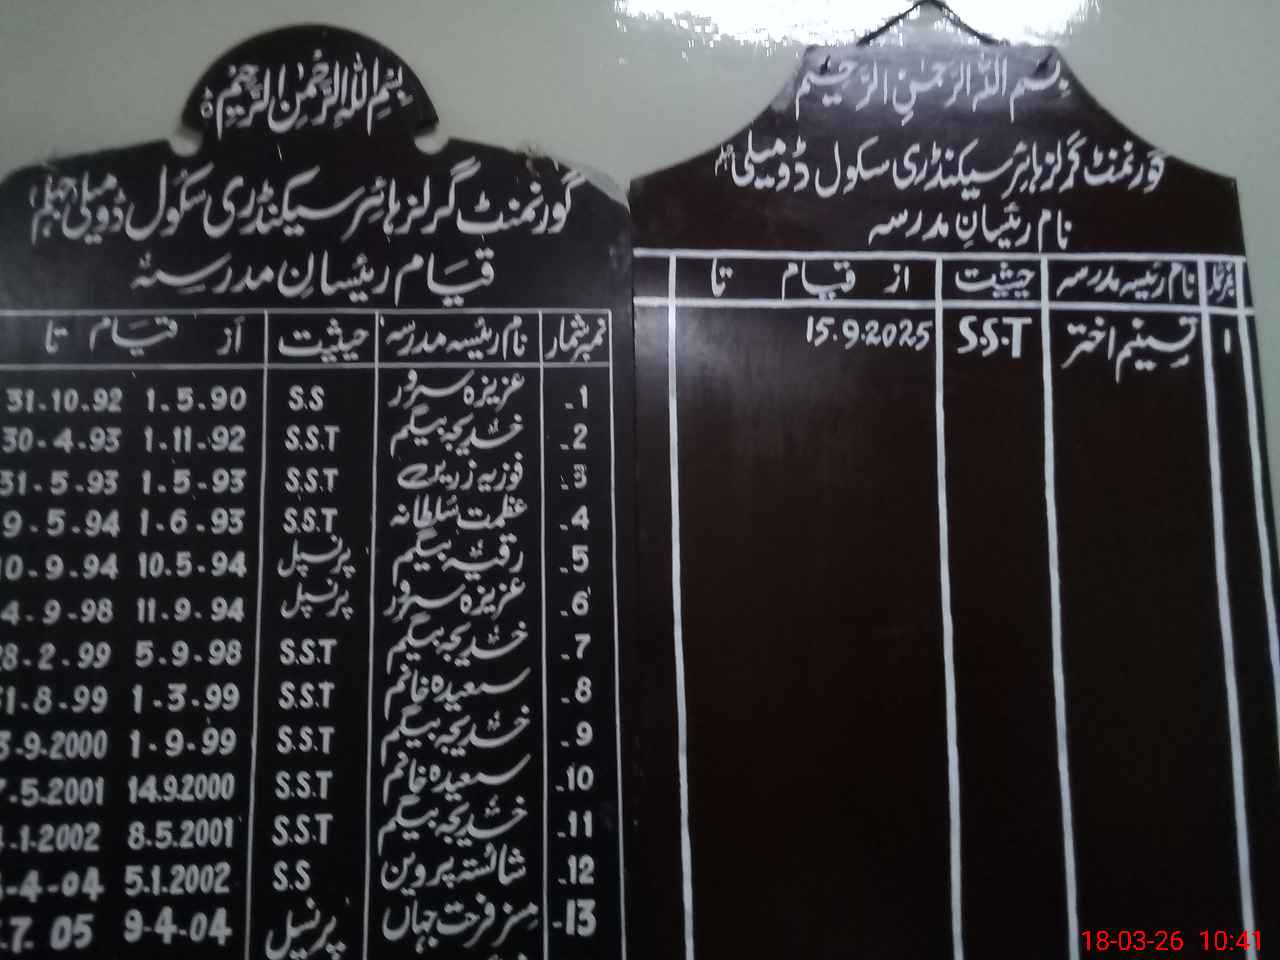 بِسْمِ اللّٰہِ الرَّحْمٰنِ الرَّحِیْمِ ہ
گورنمنٹ گرلز ہائر سیکنڈری سکول ڈومیلی جہلم
قیام رئیسانِ مدرسہ
نمبر شمار نام رئیسہ مدرسہ حیثیت از قیام تا
1- عزیزہ سرور S.S 1.5.90 31-10-92
2- خدیجہ بیگم S.S.T 1-11-92 30-4-93
3- فوزیہ زرین S.S.T 1-5-93 31-5-93
4- عظمت سلطانہ S.S.T 1-6-93 9-5-94
5- رقیہ بیگم پرنسپل 10.5-94 10-9-94
6- عزیزہ سرور پرنسپل 11-9-94 4-9-98
7- خدیجہ بیگم S.S.T 5-9-98 28-2-99
8- سعیدہ خانم S.S.T 1-3-99 31-8-99
9- خدیجہ بیگم S.S.T 1-9-99 3-9-2000
10- سعیدہ خانم S.S.T 14.9.2000 7-5-2001
11- خدیجہ بیگم S.S.T 8.5.2001 -1-2002
12- شائستہ پروین S.S 5.1.2002 -4-04
13- مسز فرحت جہاں پرنسپل 9-4-04 .7. 05
بسم اللہ الرحمٰن الرحیم
گورنمنٹ گرلز ہائر سیکنڈری سکول ڈومیلی جہلم
نام رئیسانِ مدرسہ
نمبر شمار نام رئیسہ مدرسہ حیثیت از قیام تا
1 تسنیم اختر S.S.T 15.9.2025
18-03-26 10:41